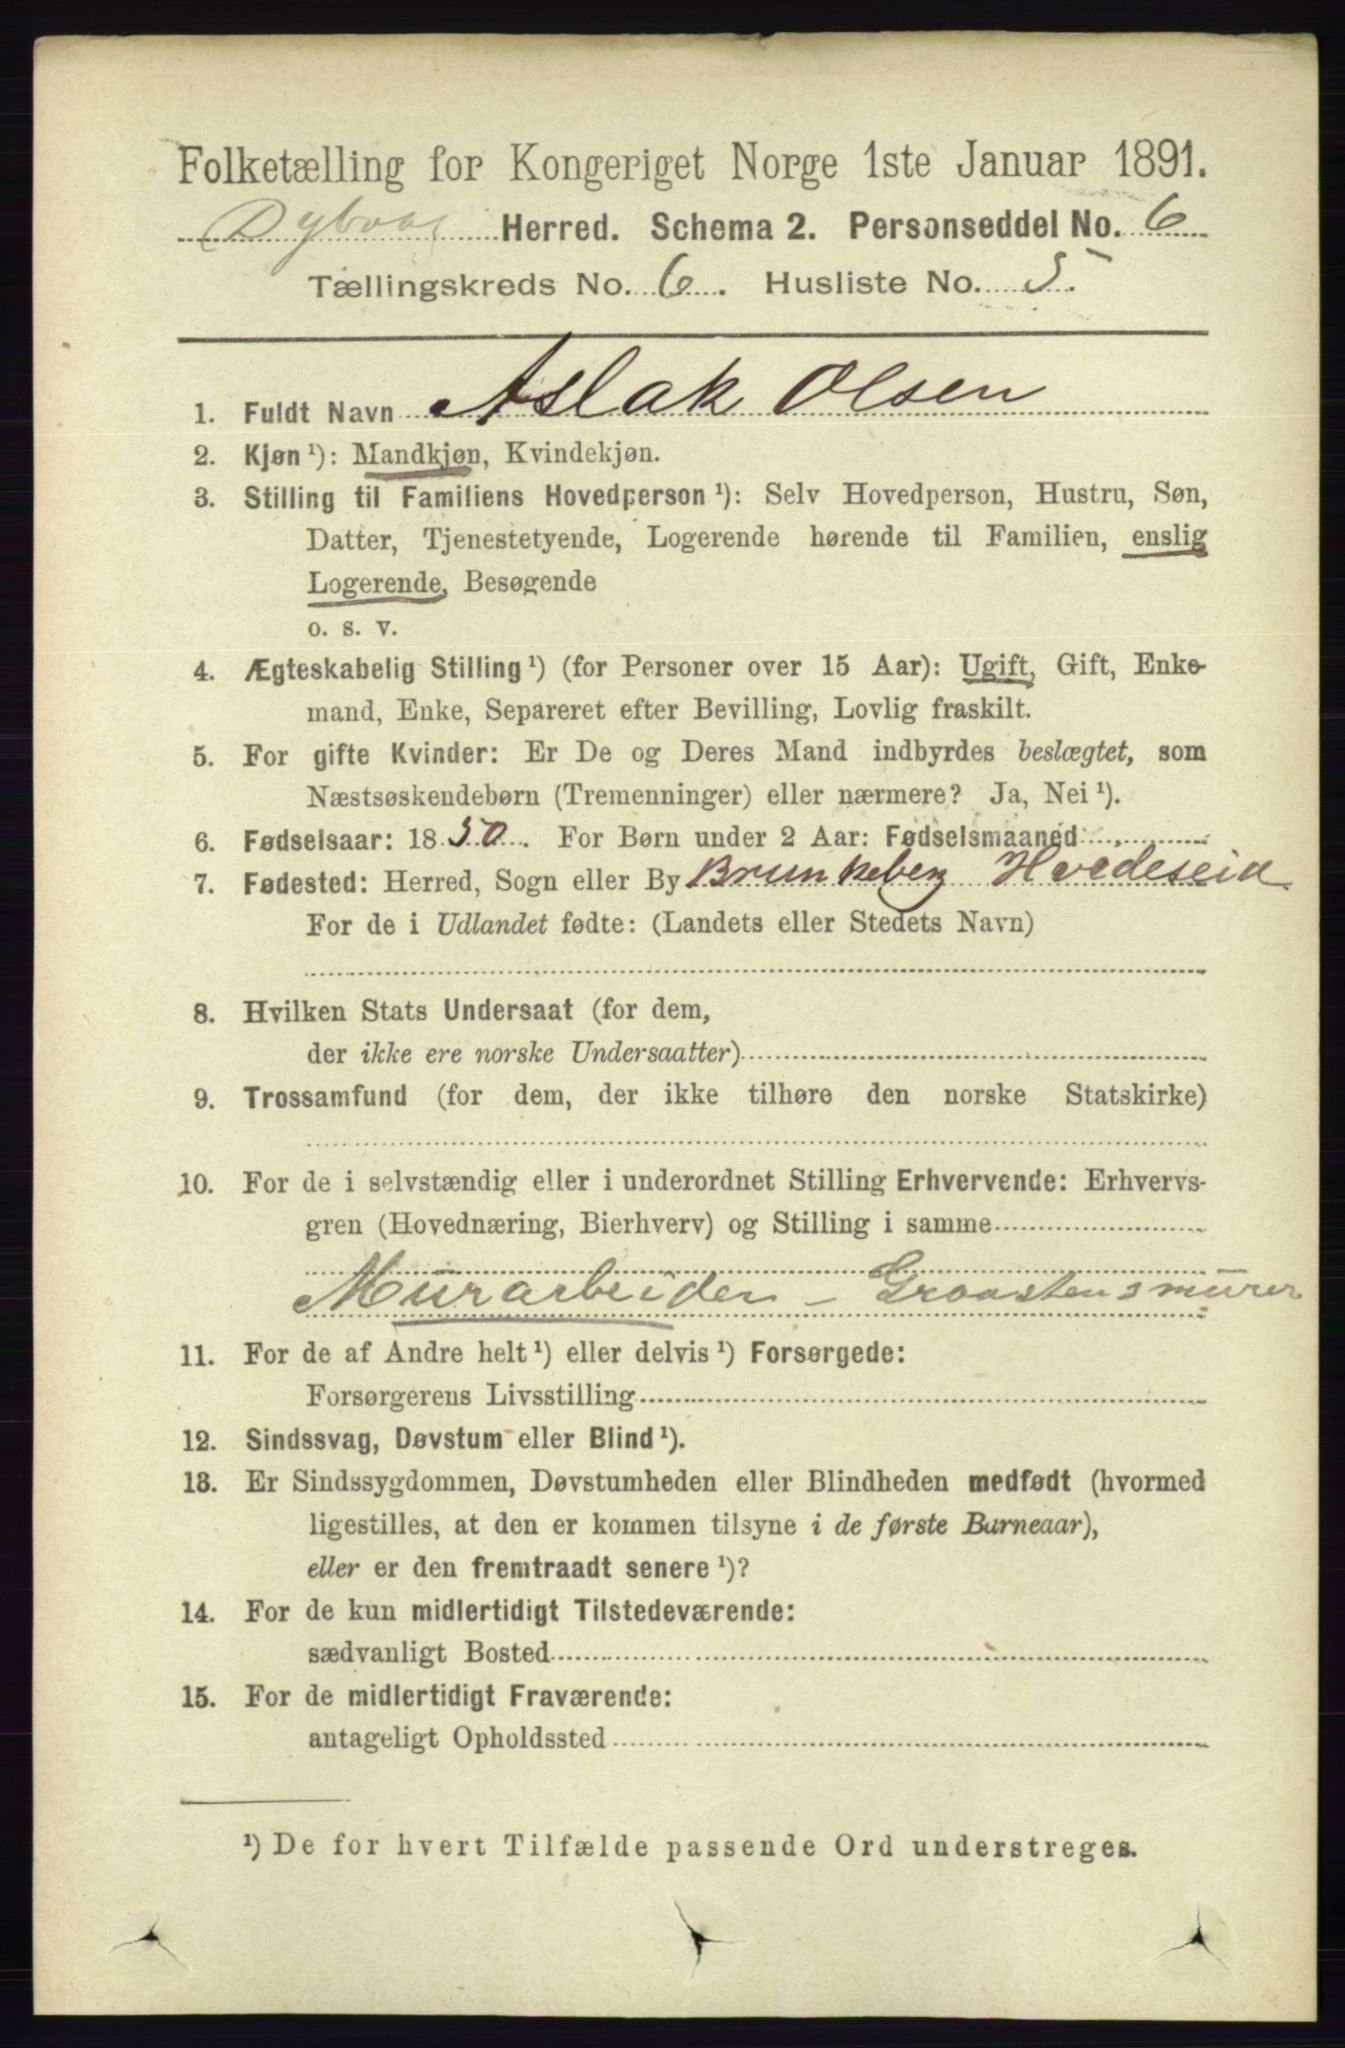 Folketælling for Kongeriget Norge 1ste Januar 1891.
Dybvaag Herred. Schema 2. Personseddel No. 6
Tællingskreds No. 6. Husliste No. 5.
1. Fuldt Navn Aslak Olsen
2. Kjøn ¹): Mandkjøn, Kvindekjøn.
3. Stilling til Familiens Hovedperson ¹): Selv Hovedperson, Hustru, Søn,
Datter, Tjenestetyende, Logerende hørende til Familien, enslig
Logerende, Besøgende
o. s. v.
4. Ægteskabelig Stilling ¹) (for Personer over 15 Aar): Ugift, Gift, Enke-
mand, Enke, Separeret efter Bevilling, Lovlig fraskilt.
5. For gifte Kvinder: Er De og Deres Mand indbyrdes beslægtet, som
Næstsøskendebørn (Tremenninger) eller nærmere? Ja, Nei ¹).
6. Fødselsaar: 1850. For Børn under 2 Aar: Fødselsmaaned
7. Fødested: Herred, Sogn eller By Brunkeberg Hvedeseid
For de i Udlandet fødte: (Landets eller Stedets Navn)
8. Hvilken Stats Undersaat (for dem,
der ikke ere norske Undersaatter)
9. Trossamfund (for dem, der ikke tilhøre den norske Statskirke)
10. For de i selvstændig eller i underordnet Stilling Erhvervende: Erhvervs-
gren (Hovednæring, Bierhverv) og Stilling i samme
Murarbeider – Graastensmurer
11. For de af Andre helt ¹) eller delvis ¹) Forsørgede:
Forsørgerens Livsstilling
12. Sindssvag, Døvstum eller Blind ¹).
13. Er Sindssygdommen, Døvstumheden eller Blindheden medfødt (hvormed
ligestilles, at den er kommen tilsyne i de første Barneaar),
eller er den fremtraadt senere ¹)?
14. For de kun midlertidigt Tilstedeværende:
sædvanligt Bosted
15. For de midlertidigt Fraværende:
antageligt Opholdssted
¹) De for hvert Tilfælde passende Ord understreges.